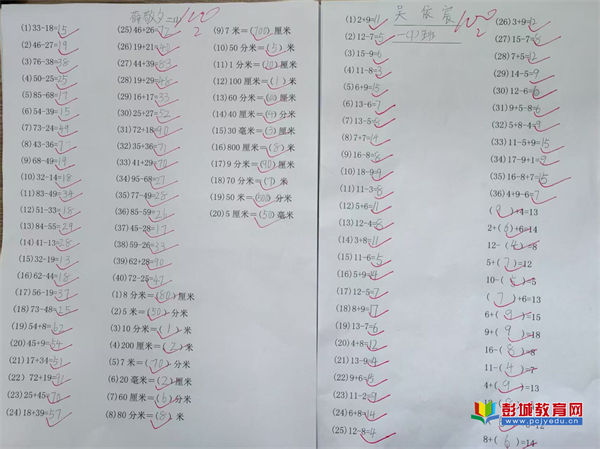 薛敬夕 二(1) 100
2
(1)33-18=15
(2)46-27=19
(3)76-38=38
(4)50-25=25
(5)85-68=17
(6)54-39=15
(7)73-24=49
(8)43-36=7
(9)68-49=19
(10)32-14=18
(11)83-49=34
(12)51-33=18
(13)84-55=29
(14)41-13=28
(15)32-19=13
(16)62-44=18
(17)56-19=37
(18)73-48=25
(19)54+8=62
(20)45+9=54
(21)17+34=51
(22)72+19=91
(23)25+45=70
(24)18+39=57
(25)46+26=72
(26)19+21=40
(27)44+39=83
(28)19+29=48
(29)16+17=33
(30)25+27=52
(31)72+18=90
(32)35+36=71
(33)41+29=70
(34)95-68=27
(35)77-49=28
(36)85-59=26
(37)45-28=17
(38)59-26=33
(39)62+28=90
(40)72-25=47
(1)8分米=(80)厘米
(2)5米=(50)分米
(3)10分米=(1)米
(4)200厘米=(2)米
(5)7米=(70)分米
(6)20毫米=(2)厘米
(7)60厘米=(6)分米
(8)80分米=(8)米
(9)7米=(700)厘米
(10)50分米=(5)米
(11)1分米=(10)厘米
(12)100厘米=(1)米
(13)60分米=(6)米
(14)40厘米=(4)分米
(15)30毫米=(3)厘米
(16)800厘米=(8)米
(17)9分米=(90)厘米
(18)70分米=(7)米
(19)50米=(500)分米
(20)5厘米=(50)毫米
吴依宸 100
一(1)班 2
(1)2+9=11
(2)12-7=5
(3)15-9=6
(4)11-8=3
(5)6+9=15
(6)13-6=7
(7)13-5=8
(8)7+7=14
(9)16-8=8
(10)18-9=9
(11)11-3=8
(12)5+6=11
(13)12-4=8
(14)3+8=11
(15)11-6=5
(16)5+9=14
(17)12-5=7
(18)8+9=17
(19)13-7=6
(20)4+8=12
(21)13-9=4
(22)9+6=15
(23)11-2=9
(24)6+8=14
(25)12-8=4
(26)3+9=12
(27)15-7=8
(28)7+5=12
(29)14-5=9
(30)12-6=6
(31)9+5-8=6
(32)5+8-4=9
(33)11-5+9=15
(34)17-9+1=9
(35)16-8+7=15
(36)4+9-6=7
(9)+4=13
2+(6)+6=14
12-(4)=8
5+(7)=12
10-(5)=5
(7)+6=13
6+(9)=15
9+(9)=18
16-(8)=8
11-(4)=7
4+(9)=13
8+(6)=14
彭城教育网
www.pcjyedu.cn